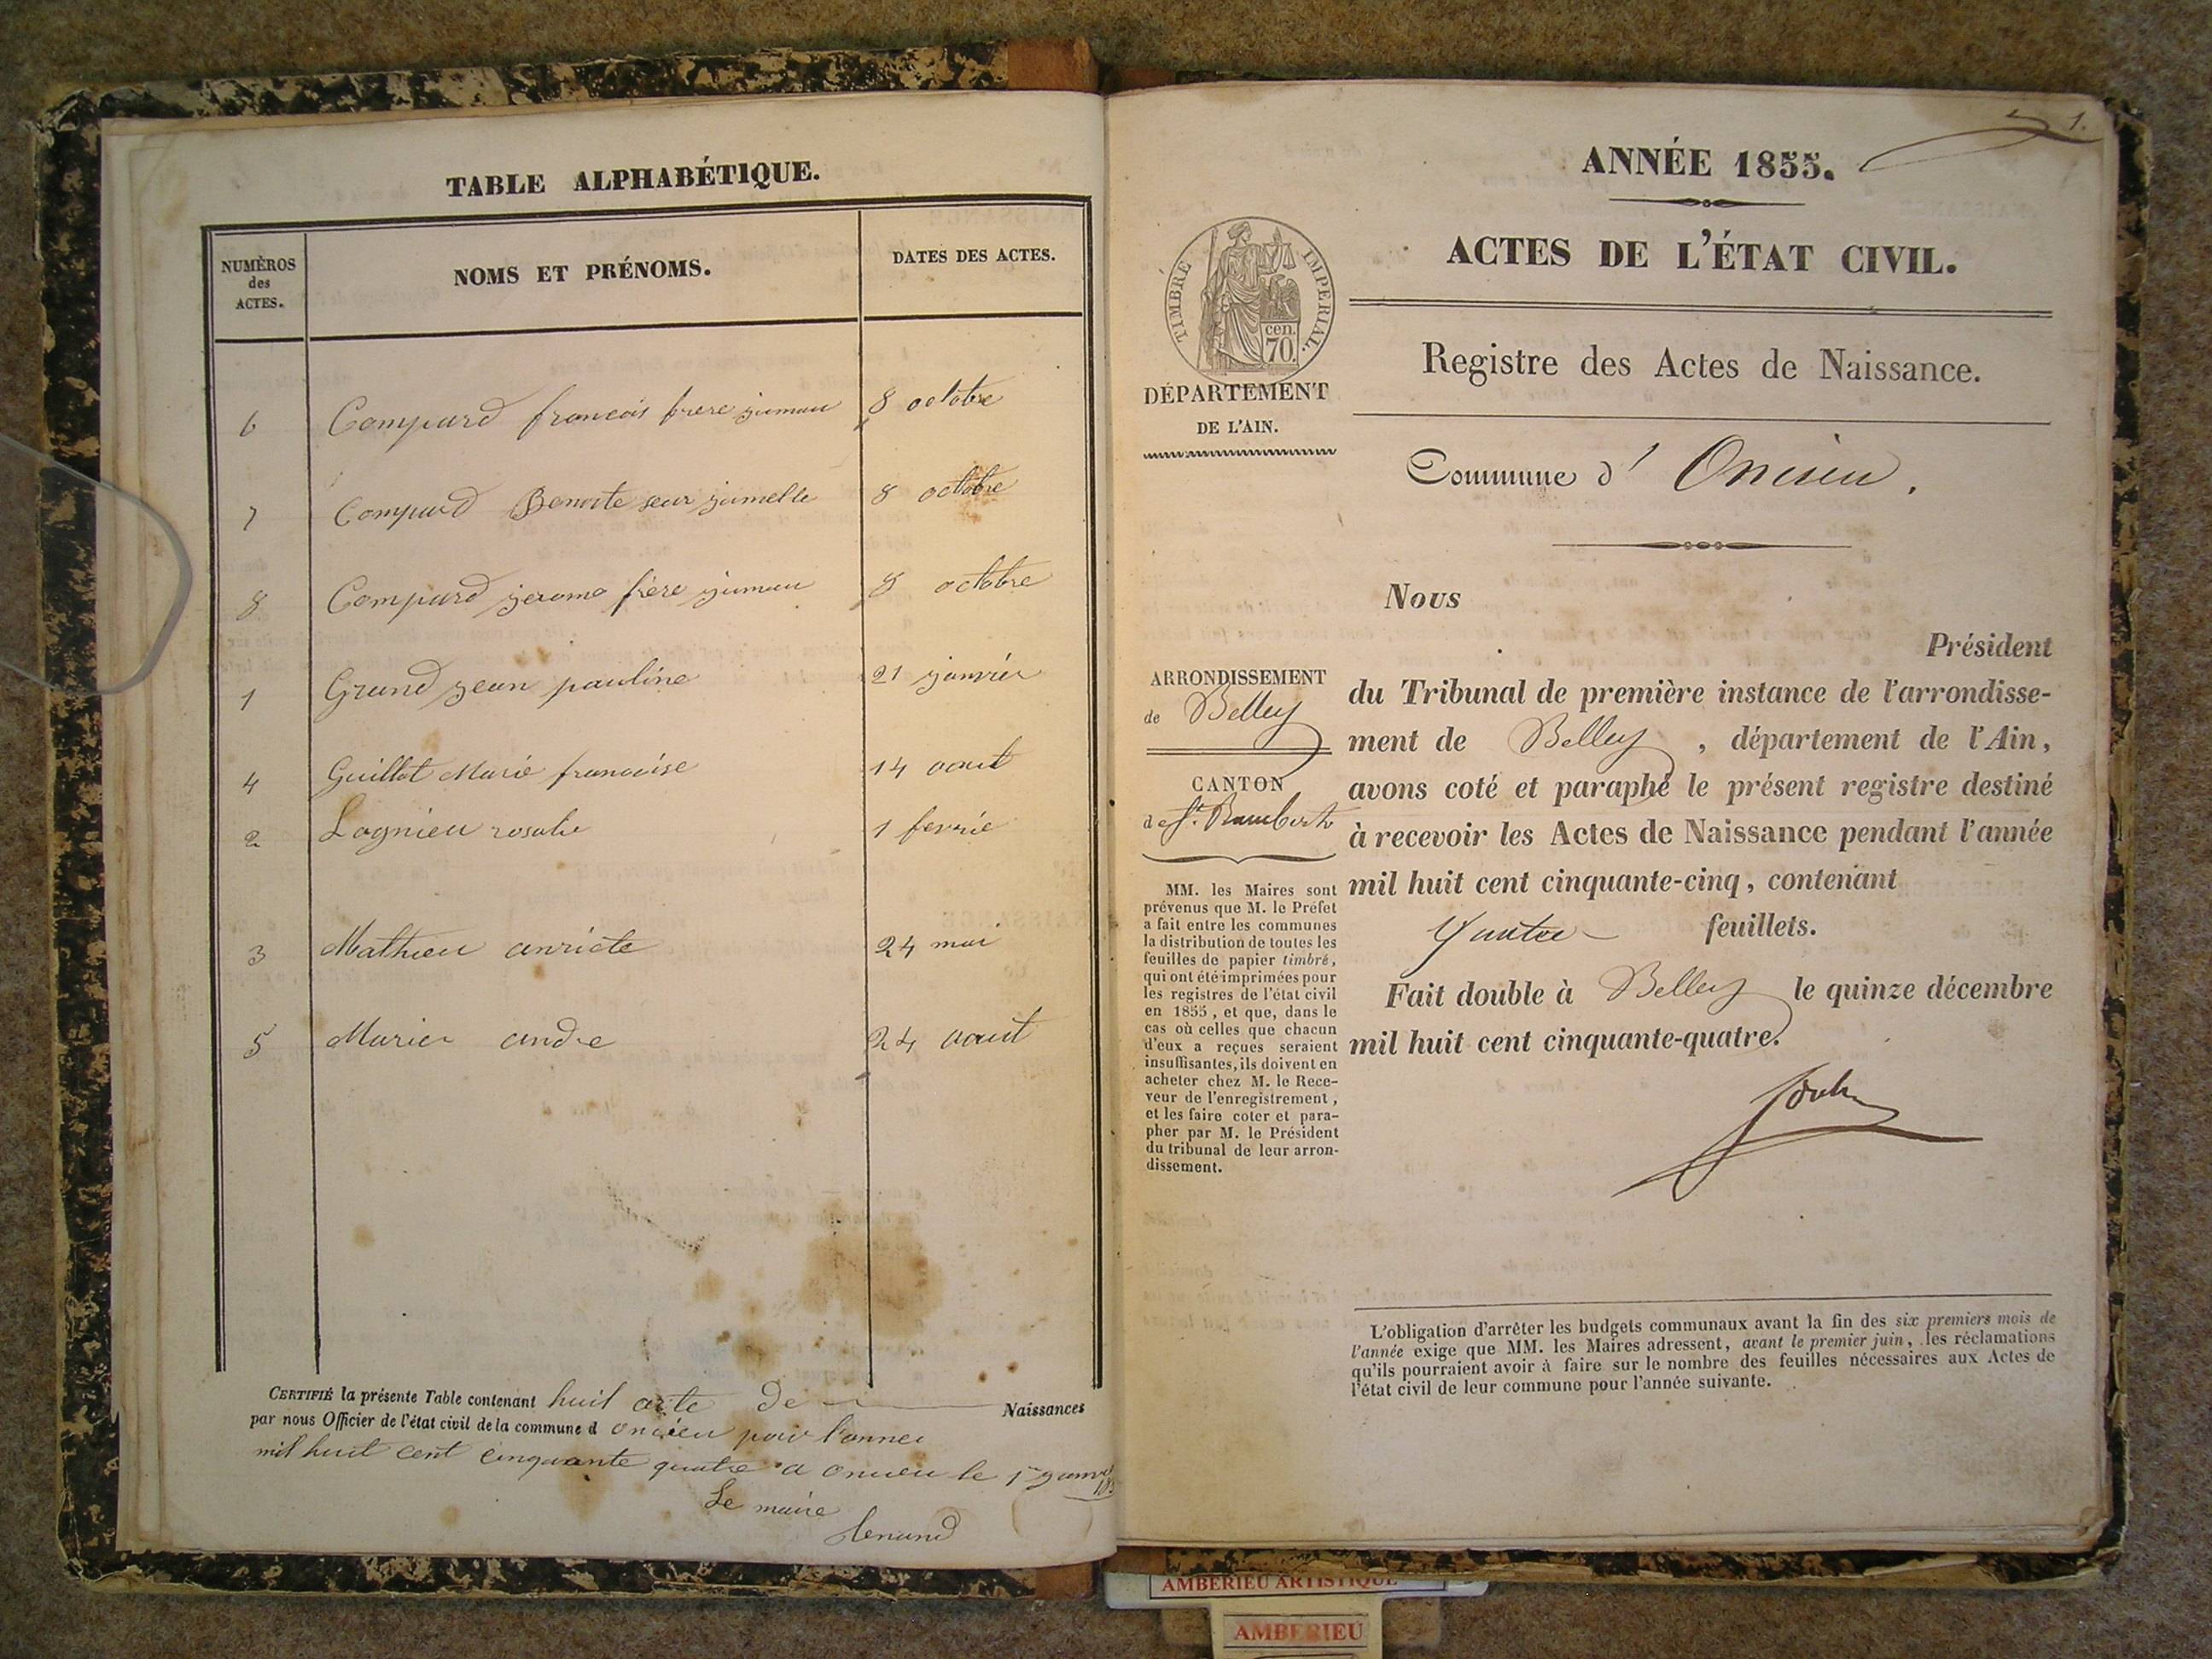 TABLE ALPHABÉTIQUE.
NUMÈROS
des
ACTES.
NOMS ET PRÉNOMS.
DATES DES ACTES.
6 Compard francois frere jumau 8 octobre
7 Compard Benoite seur jumelle 8 octobre
8 Compard jerome frère jumau 8 octobre
1 Grand jean pauline 21 janvier
4 Guillot Marie francoise 14 aout
2 Lagnieu rosalie 1 fevrié
3 Mathieu anriete 24 mai
5 Marier andre 24 aout
CERTIFIÉ la présente Table contenant huit acte De Naissances
par nous Officier de l'état civil de la commune d oncieu pour l'annee
mil huit cent cinquante quatre a oncieu le 1er janvié
Le maire
1.
ANNÉE 1855.
ACTES DE L'ÉTAT CIVIL.
TIMBRE IMPÉRIAL.
cen.
70.
DÉPARTEMENT
DE L'AIN.
Registre des Actes de Naissance.
Commune d' Oncieu.
ARRONDISSEMENT
de Belley
CANTON
de St. Rambert
MM. les Maires sont
prévenus que M. le Préfet
a fait entre les communes
la distribution de toutes les
feuilles de papier timbré,
qui ont été imprimées pour
les registres de l'état civil
en 1855, et que, dans le
cas où celles que chacun
d'eux a reçues seraient
insuffisantes, ils doivent en
acheter chez M. le Rece-
veur de l'enregistrement,
et les faire coter et para-
pher par M. le Président
du tribunal de leur arron-
dissement.
Nous
Président
du Tribunal de première instance de l'arrondisse-
ment de Belley, département de l'Ain,
avons coté et paraphé le présent registre destiné
à recevoir les Actes de Naissance pendant l'année
mil huit cent cinquante-cinq, contenant
feuillets.
Fait double à Belley le quinze décembre
mil huit cent cinquante-quatre.
L'obligation d'arrêter les budgets communaux avant la fin des six premiers mois de
l'année exige que MM. les Maires adressent, avant le premier juin, les réclamations
qu'ils pourraient avoir à faire sur le nombre des feuilles nécessaires aux Actes de
l'état civil de leur commune pour l'année suivante.
AMBERIEU ARTISTIQUE
AMBERIEU